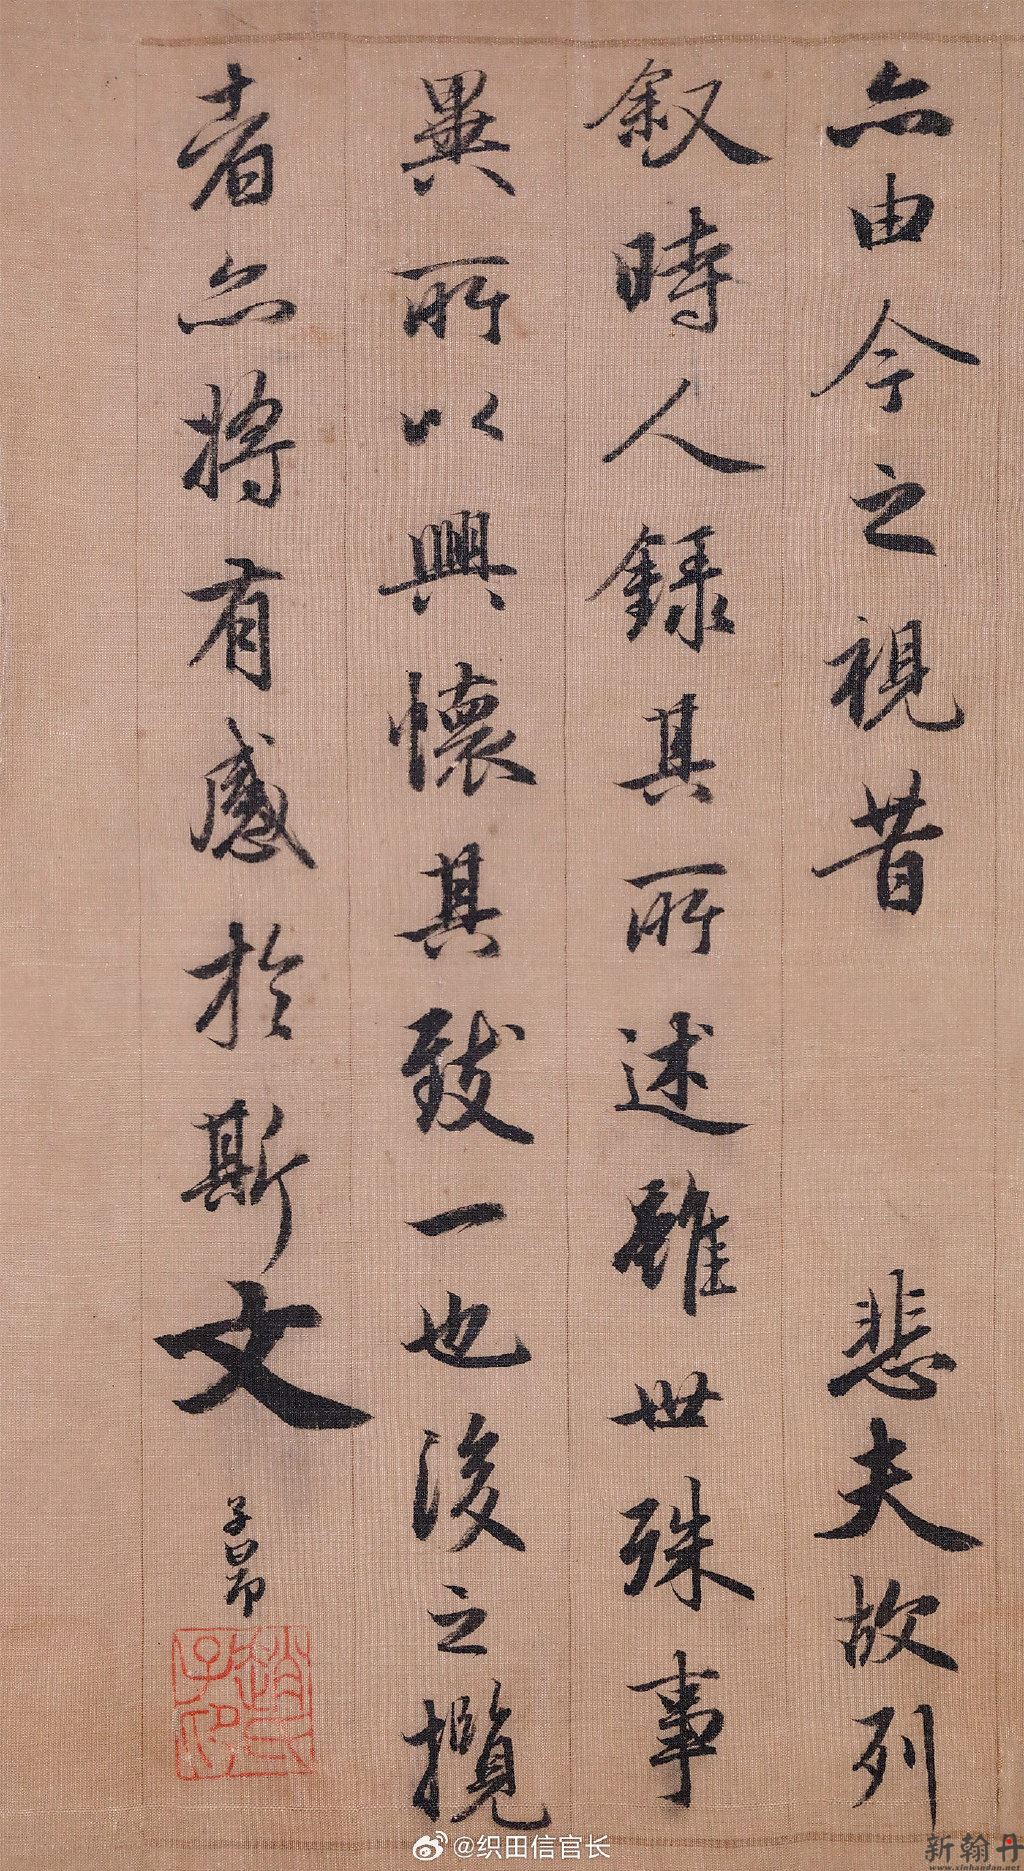 亦由今之視昔 悲夫故列
叙時人錄其所述雖世殊事
異所以興懷其致一也後之攬
者亦將有感於斯文
子昂
趙氏子印
@织田信官长
新翰丹
www.xinhandan.net